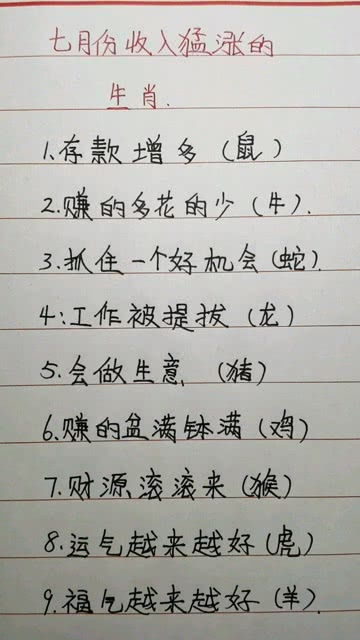 七月份收入猛涨的
生肖.
1.存款增多(鼠)
2.赚的多花的少(牛).
3.抓住一个好机会(蛇).
4:工作被提拔(龙)
5.会做生意.(猪)
6.赚的盆满钵满(鸡)
7.财源滚滚来(猴)
8.运气越来越好(虎)
9.福气越来越好(羊).